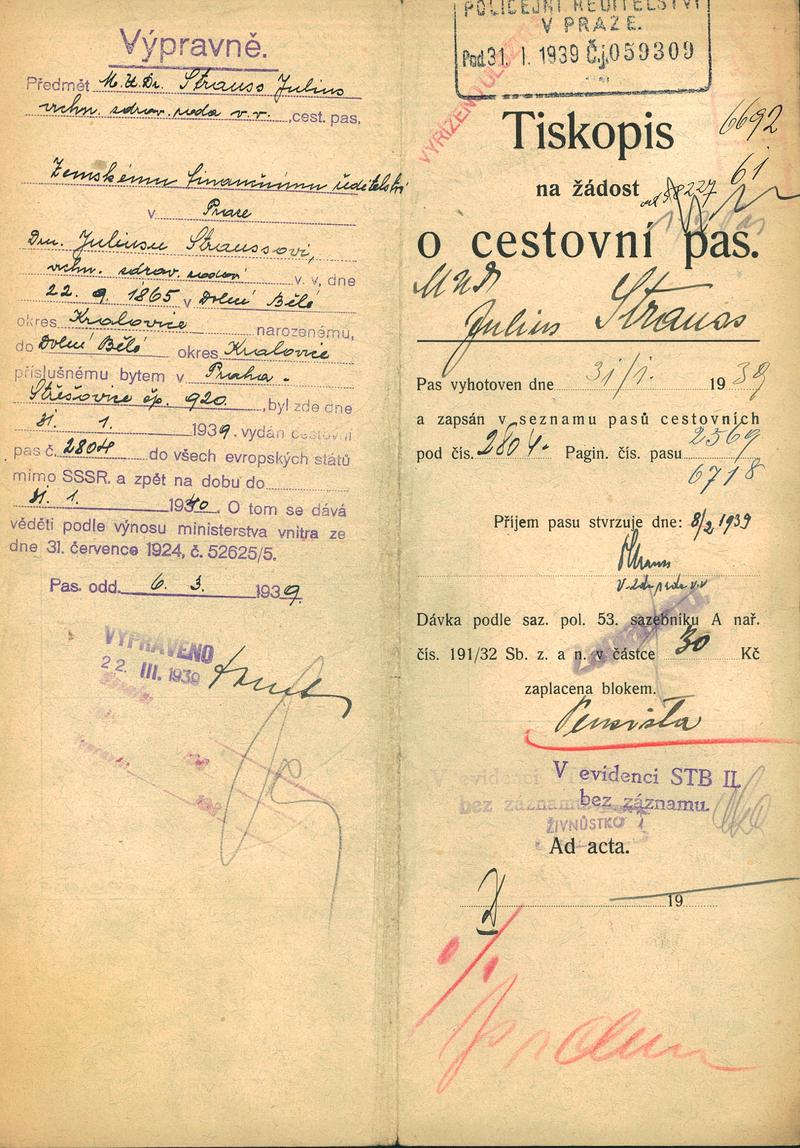 Výpravně.
Předmět M.U.Dr. Strauss Julius
vrchn. zdrav. rada v.v. , cest. pas,
Zemskému finančnímu ředitelství
v Praze
Dru. Juliusu Straussovi,
vrchn. zdrav. radovi v. v, dne
22. 9. 1865 v Dolní Bělé
okres Kralovice narozenému,
do Dolní Bělé okres Kralovice
příslušnému bytem v Praha -
Střešovice čp. 920 , byl zde dne
31. 1. 1939. vydán cestovní
pas č. 2804 do všech evropských států
mimo SSSR. a zpět na dobu do
31. 1. 1940. O tom se dává
věděti podle výnosu ministerstva vnitra ze
dne 31. července 1924, č. 52625/5.
Pas. odd. 6. 3. 1939.
VYPRAVENO
22. III. 1939
POLICEJNÍ ŘEDITELSTVÍ
V PRAZE.
Pod 31. I. 1939 Čj. 059309
Tiskopis 6692
na žádost 61
o cestovní pas.
MUDr
Julius Strauss
Pas vyhotoven dne 31/1. 1939
a zapsán v seznamu pasů cestovních
pod čís. 2804. Pagin. čís. pasu 2569
6718
Příjem pasu stvrzuje dne: 8/2 1939
Strauss
Dávka podle saz. pol. 53. sazebníku A nař.
čís. 191/32 Sb. z. a n. v částce 30 Kč
zaplacena blokem.
Pensista
V evidenci STB II.
bez záznamu.
ŽIVNŮSTKO
Ad acta.
19